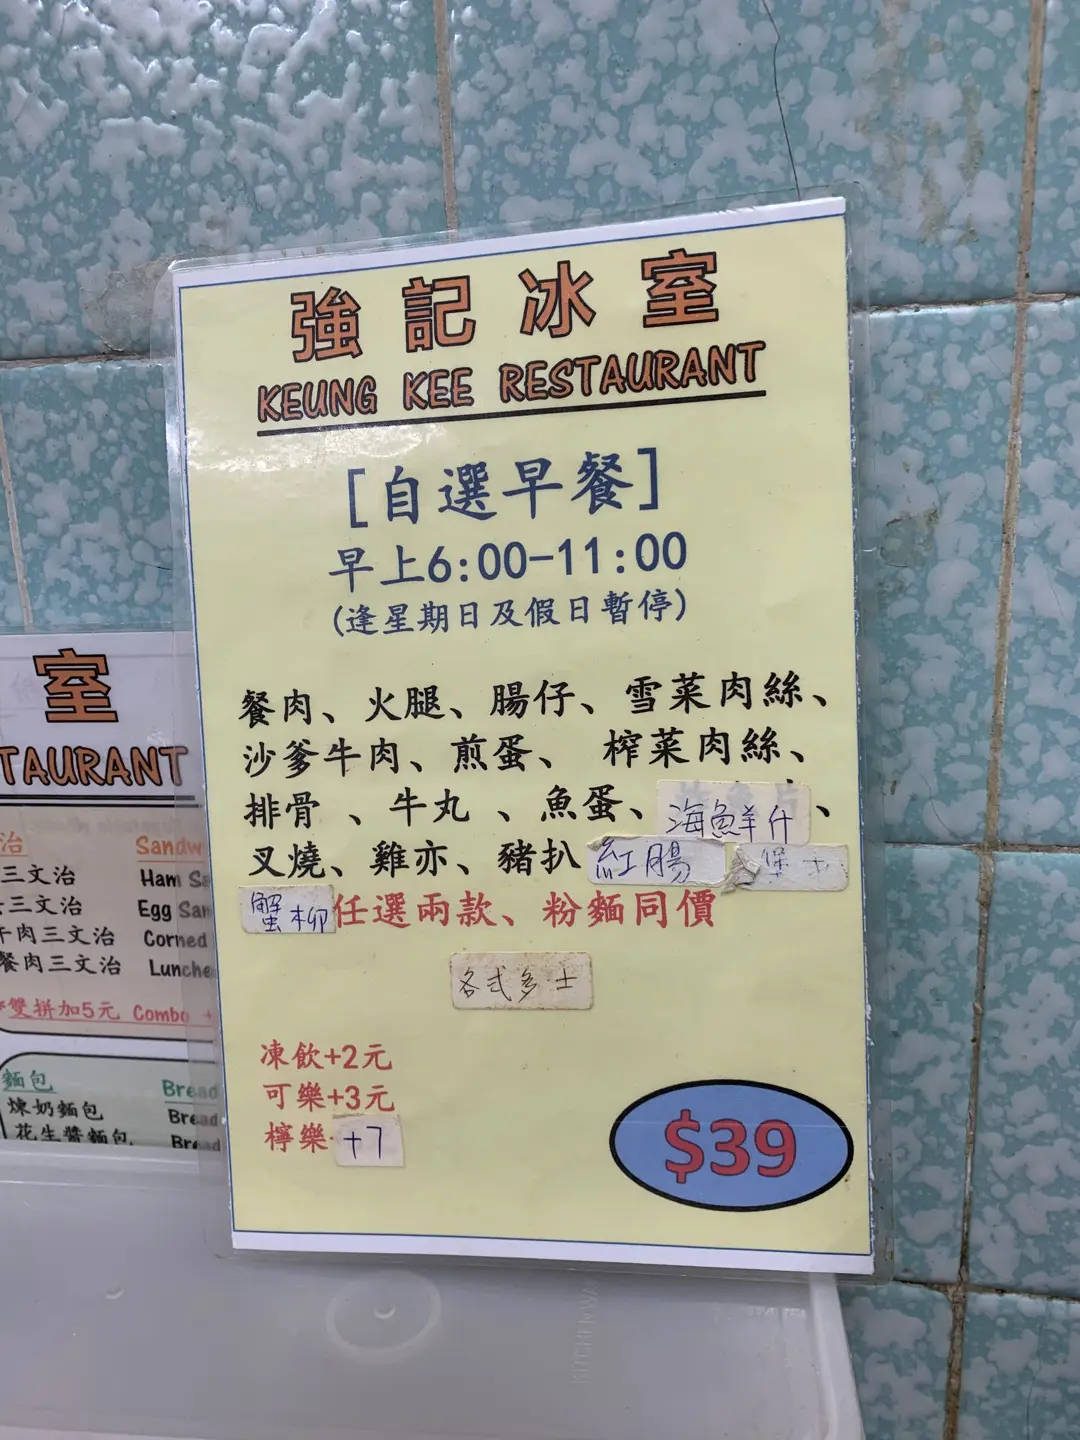 強記冰室
KEUNG KEE RESTAURANT
[自選早餐]
早上6:00-11:00
(逢星期日及假日暫停)
餐肉、火腿、腸仔、雪菜肉絲、
沙爹牛肉、煎蛋、榨菜肉絲、
排骨、牛丸、魚蛋、海鮮什、
叉燒、雞亦、豬扒 紅腸
蟹柳 任選兩款、粉麵同價
各式多士
凍飲+2元
可樂+3元
檸樂 +7
$39
室
TAURANT
治 Sandw
三文治 Ham Sa
三文治 Egg San
牛肉三文治 Corned
餐肉三文治 Lunche
*雙拼加5元 Combo +
麵包 Bread
煉奶麵包 Bread
花生醬麵包 Brea
KITCHENWA